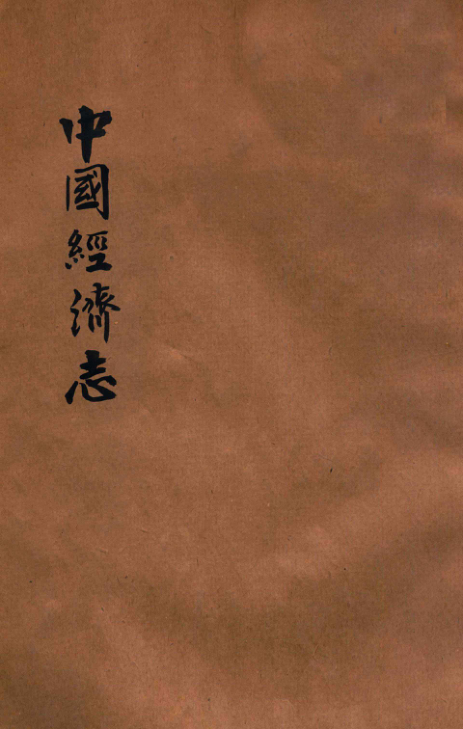 中國經濟志